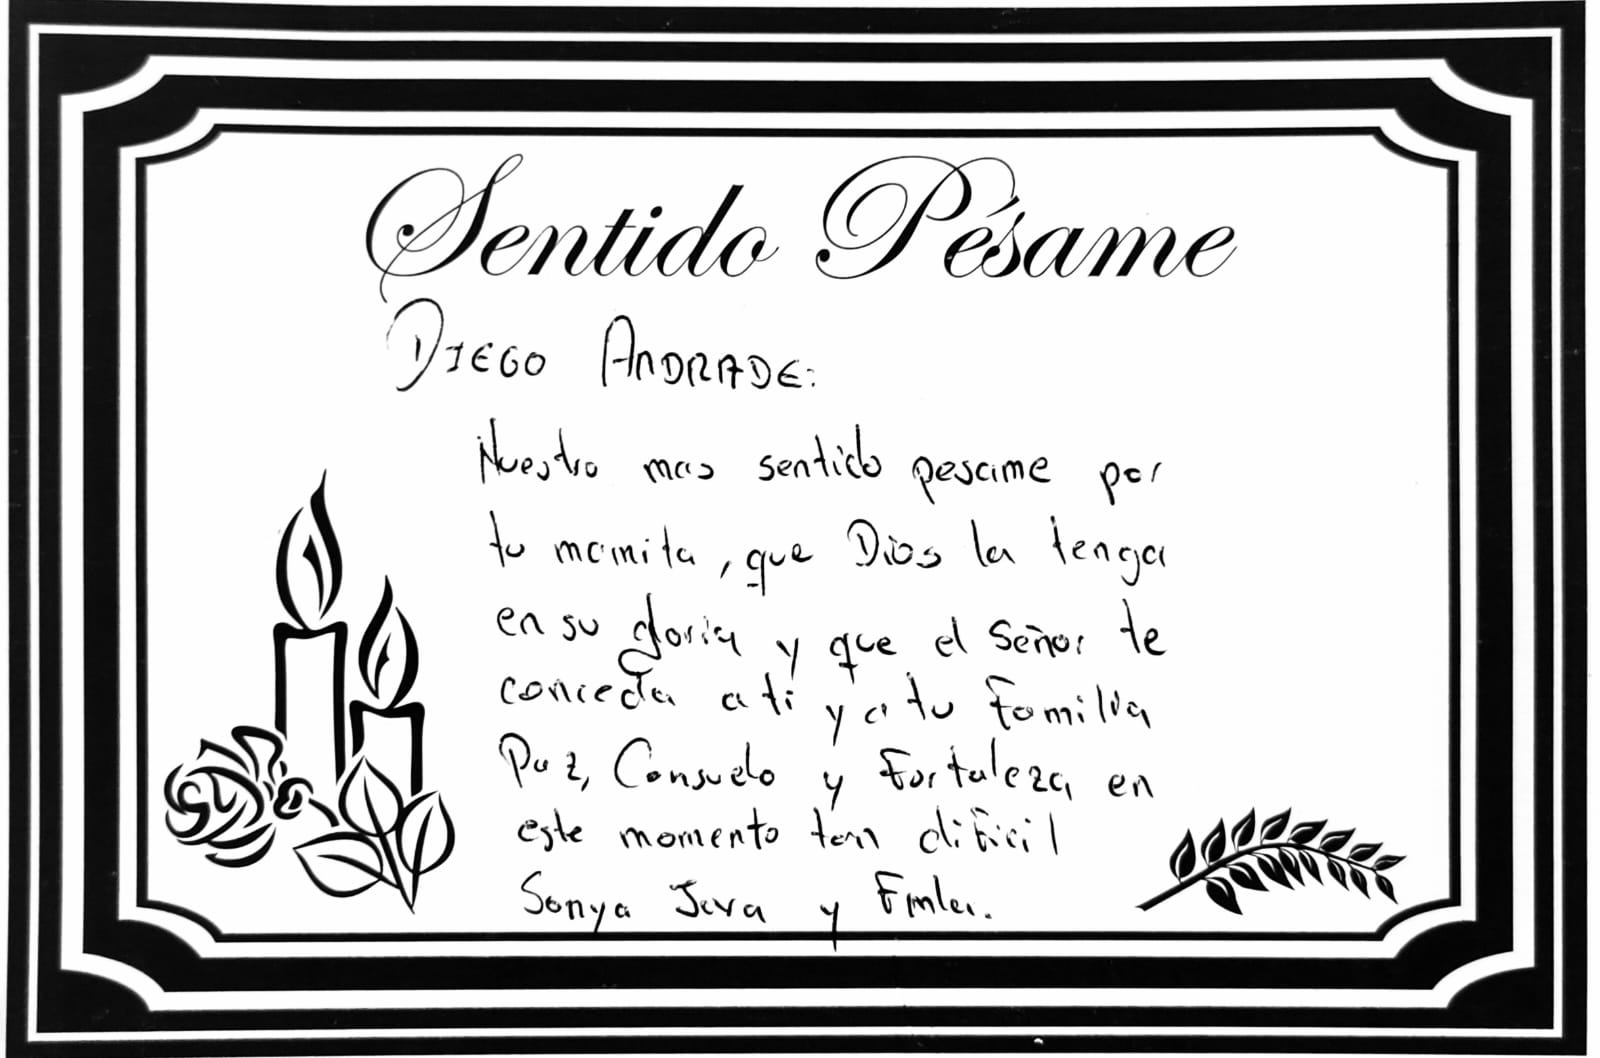 Sentido Pésame
DIEGO ANDRADE:
Nuestro mas sentido pesame por
tu mamita, que Dios la tenga
en su gloria y que el Señor te
conceda a ti y a tu Familia
Paz, Consuelo y Fortaleza en
este momento tan dificil
Sonya Java y Fmla.